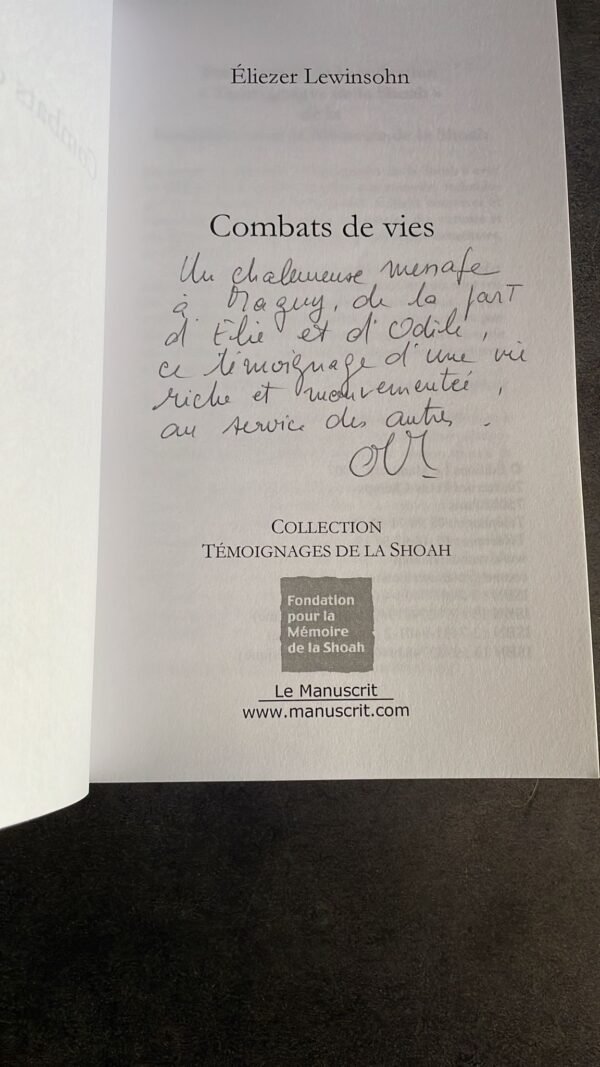 Éliezer Lewinsohn
Combats de vies
Un chaleureuse message
à Maguy, de la part
d'Élie et d'Odile,
ce témoignage d'une vie
riche et mouvementée,
au service des autres.
COLLECTION
TÉMOIGNAGES DE LA SHOAH
Fondation
pour la
Mémoire
de la Shoah
Le Manuscrit
www.manuscrit.com